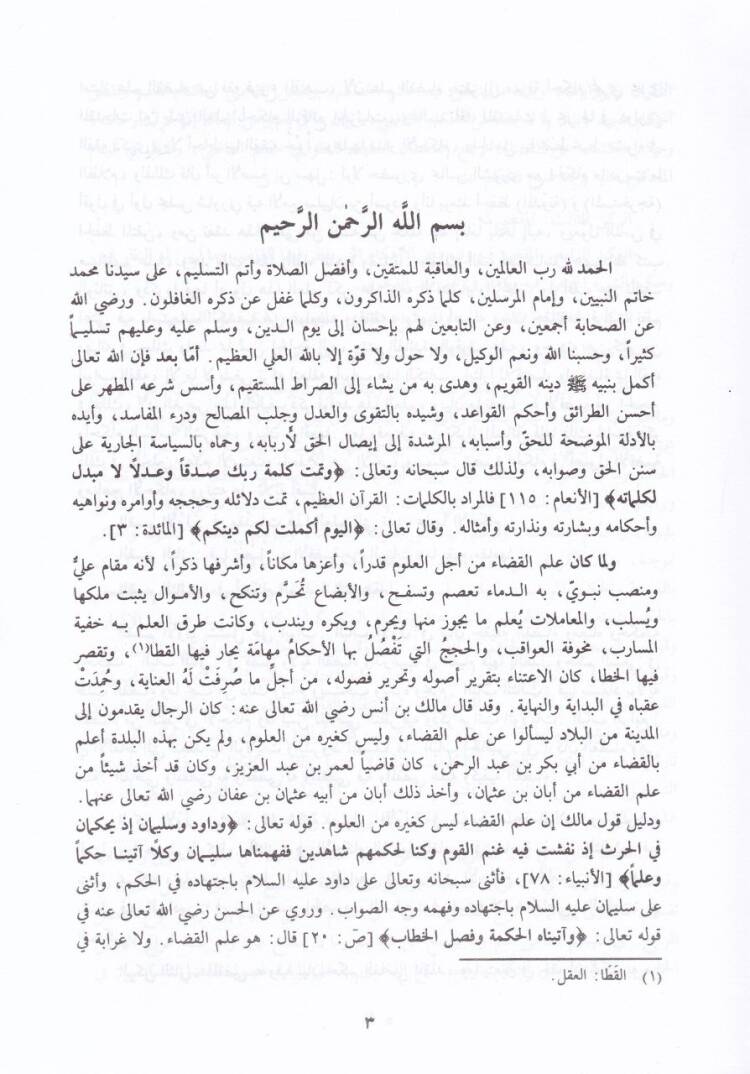 بسم اللَّه الرَّحمٰن الرَّحيم
الحمد لله رب العالمين، والعاقبة للمتقين، وأفضل الصلاة وأتم التسليم، على سيدنا محمد
خاتم النبيين، وإمام المرسلين، كلما ذكره الذاكرون، وكلما غفل عن ذكره الغافلون. ورضي الله
عن الصحابة أجمعين، وعن التابعين لهم بإحسان إلى يوم الدين، وسلم عليه وعليهم تسليماً
كثيراً، وحسبنا الله ونعم الوكيل، ولا حول ولا قوّة إلا بالله العلي العظيم. أمّا بعد فإن الله تعالى
أكمل بنبيه ﷺ دينه القويم، وهدى به من يشاء إلى الصراط المستقيم، وأسس شرعه المطهر على
أحسن الطرائق وأحكم القواعد، وشيده بالتقوى والعدل وجلب المصالح ودرء المفاسد، وأيده
بالأدلة الموضحة للحقّ وأسبابه، المرشدة إلى إيصال الحق لأربابه، وحماه بالسياسة الجارية على
سنن الحق وصوابه، ولذلك قال سبحانه وتعالى: ﴿وتمت كلمة ربك صدقاً وعدلاً لا مبدل
لكلماته﴾ [الأنعام: ١١٥] فالمراد بالكلمات: القرآن العظيم، تمت دلائله وحججه وأوامره ونواهيه
وأحكامه وبشارته ونذارته وأمثاله. وقال تعالى: ﴿اليوم أكملت لكم دينكم﴾ [المائدة: ٣].
ولما كان علم القضاء من أجل العلوم قدراً، وأعزها مكاناً، وأشرفها ذكراً، لأنه مقام عليٌّ
ومنصب نبويّ، به الدماء تعصم وتسفح، والأبضاع تُحَرَّم وتنكح، والأموال يثبت ملكها
ويُسلب، والمعاملات يُعلم ما يجوز منها ويحرم، ويكره ويندب، وكانت طرق العلم به خفية
المسارب، مخوفة العواقب، والحججُ التي تَفْصُلُ بها الأحكامُ مهامَهَ يحار فيها القطا(١)، وتقصر
فيها الخطا، كان الاعتناء بتقرير أصوله وتحرير فصوله، من أجلِّ ما صُرِفَتْ لَهُ العناية، وحُمِدَتْ
عقباه في البداية والنهاية. وقد قال مالك بن أنس رضي الله تعالى عنه: كان الرجال يقدمون إلى
المدينة من البلاد ليسألوا عن علم القضاء، وليس كغيره من العلوم، ولم يكن بهذه البلدة أعلم
بالقضاء من أبي بكر بن عبد الرحمن، كان قاضياً لعمر بن عبد العزيز، وكان قد أخذ شيئاً من
علم القضاء من أبان بن عثمان، وأخذ ذلك أبان من أبيه عثمان بن عفان رضي الله تعالى عنهما.
ودليل قول مالك إن علم القضاء ليس كغيره من العلوم. قوله تعالى: ﴿وداود وسليمان إذ يحكمان
في الحرث إذ نفشت فيه غنم القوم وكنا لحكمهم شاهدين ففهمناها سليمان وكلًا آتينا حكماً
وعلماً﴾ [الأنبياء: ٧٨]، فأثنى سبحانه وتعالى على داود عليه السلام باجتهاده في الحكم، وأثنى
على سليمان عليه السلام باجتهاده وفهمه وجه الصواب. وروي عن الحسن رضي الله تعالى عنه في
قوله تعالى: ﴿وآتيناه الحكمة وفصل الخطاب﴾ [صَ: ٢٠] قال: هو علم القضاء. ولا غرابة في
(١) القَطَا: العقل.
٣